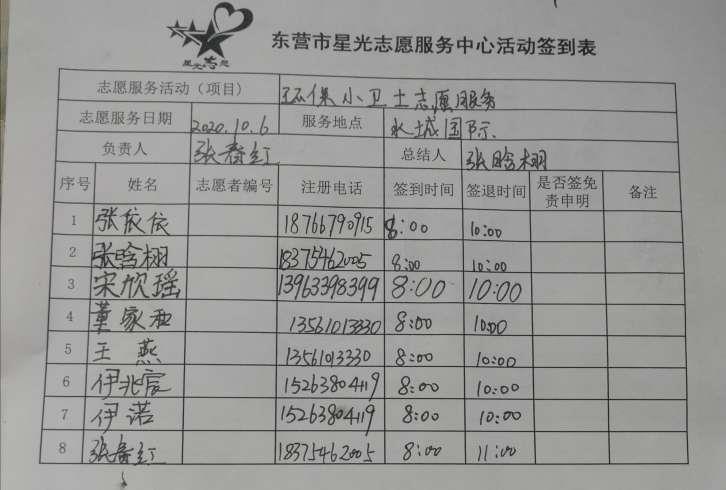 星光志愿
东营市星光志愿服务中心活动签到表
志愿服务活动（项目） 环保小卫士志愿服务
志愿服务日期 2020.10.6 服务地点 水城国际
负责人 张春红 总结人 张晗栩
序号 姓名 志愿者编号 注册电话 签到时间 签退时间 是否签免责申明 备注
1 张依依 18766790915 8:00 10:00
2 张晗栩 18375462005 8:00 10:00
3 宋欣瑶 13963398399 8:00 10:00
4 董家 13561013330 8:00 10:00
5 王燕 13561013330 8:00 10:00
6 伊兆宸 15263804119 8:00 10:00
7 伊诺 15263804119 8:00 10:00
8 张春红 18375462005 8:00 11:00